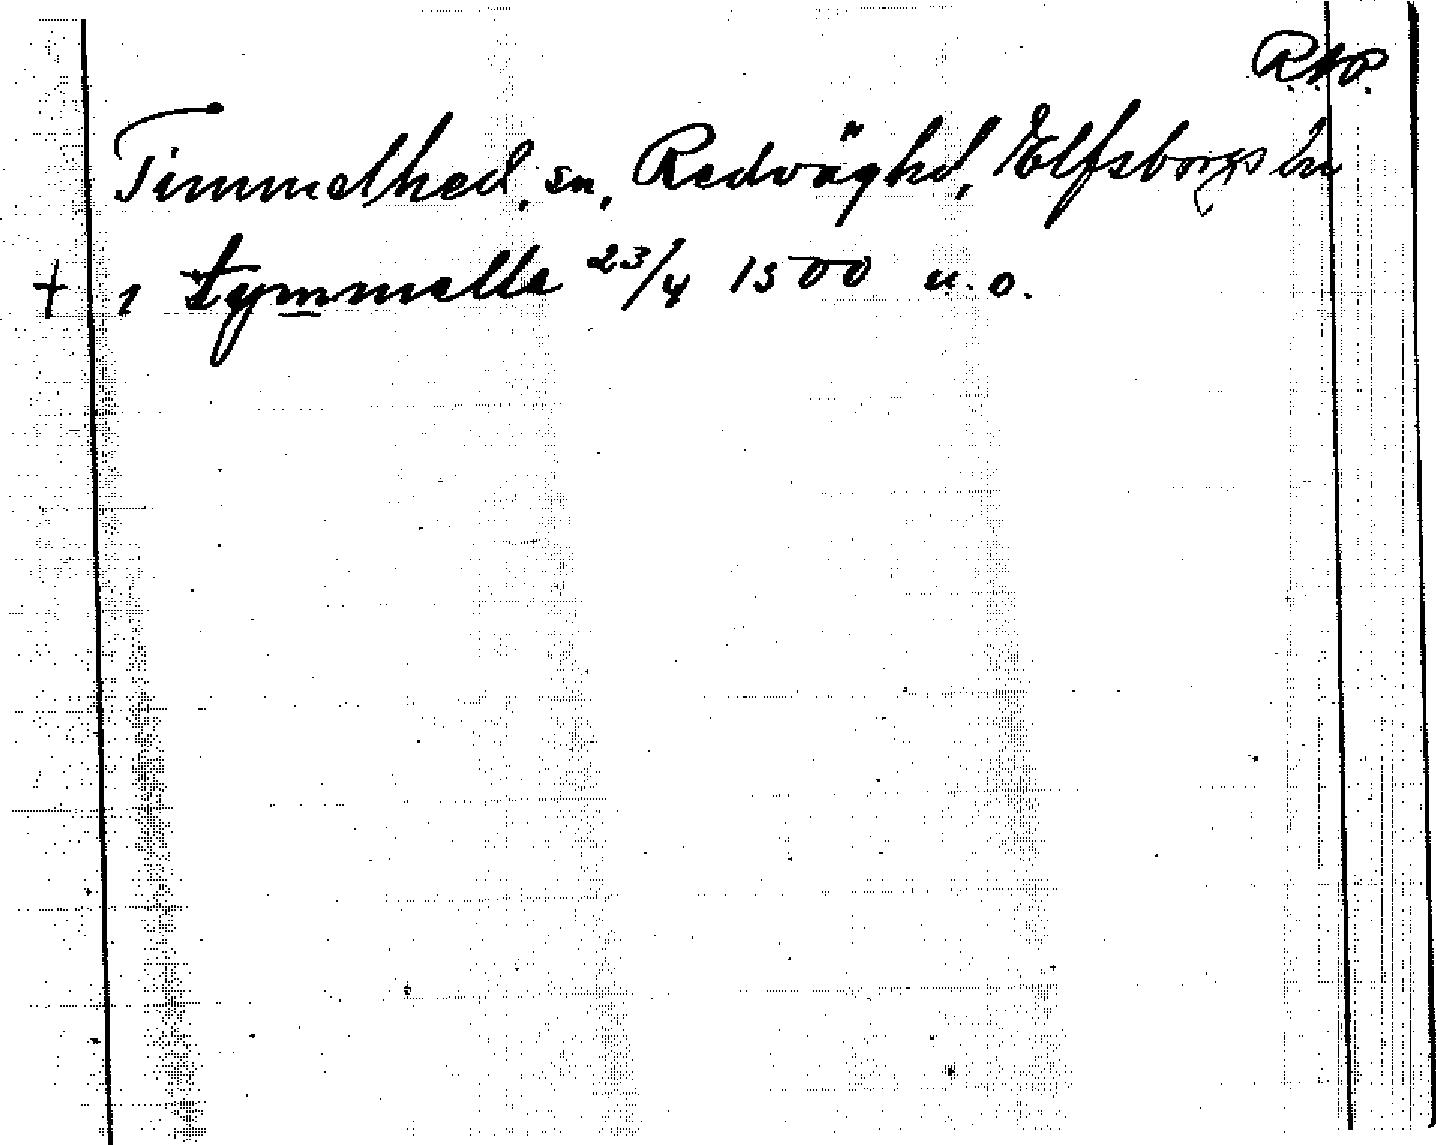 R.A.P.
Timmelhed, sn, Redväghd, Elfsborgs län
+ 1 tymmella 23/4 1500 u. o.